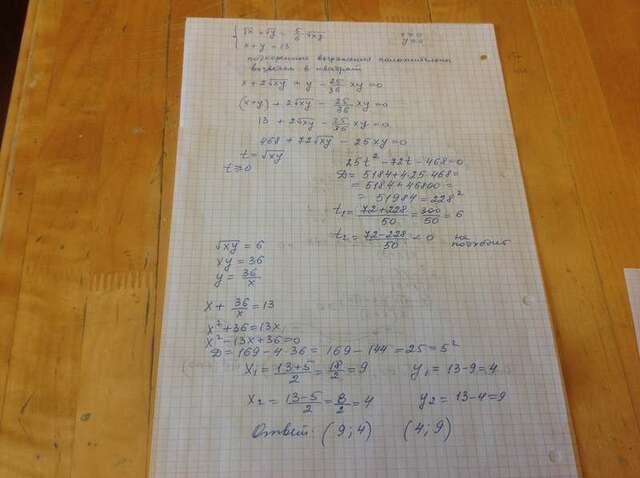 √x + √y = 5/6 √xy
x>0
x + y = 13
y>0
подкоренные выражения положительны
возведём в квадрат
x + 2√xy + y - 25/36 xy = 0
(x+y) + 2√xy - 25/36 xy = 0
13 + 2√xy - 25/36 xy = 0
468 + 72√xy - 25xy = 0
t = √xy
t ≥ 0
25t² - 72t - 468 = 0
D = 5184 + 4·25·468 =
= 5184 + 46800 =
= 51984 = 228²
t₁ = (72+228)/50 = 300/50 = 6
t₂ = (72-228)/50 < 0 не подходит
√xy = 6
xy = 36
y = 36/x
x + 36/x = 13
x² + 36 = 13x
x² - 13x + 36 = 0
D = 169 - 4·36 = 169 - 144 = 25 = 5²
x₁ = (13+5)/2 = 18/2 = 9 y₁ = 13-9 = 4
x₂ = (13-5)/2 = 8/2 = 4 y₂ = 13-4 = 9
Ответ: (9; 4) (4; 9)